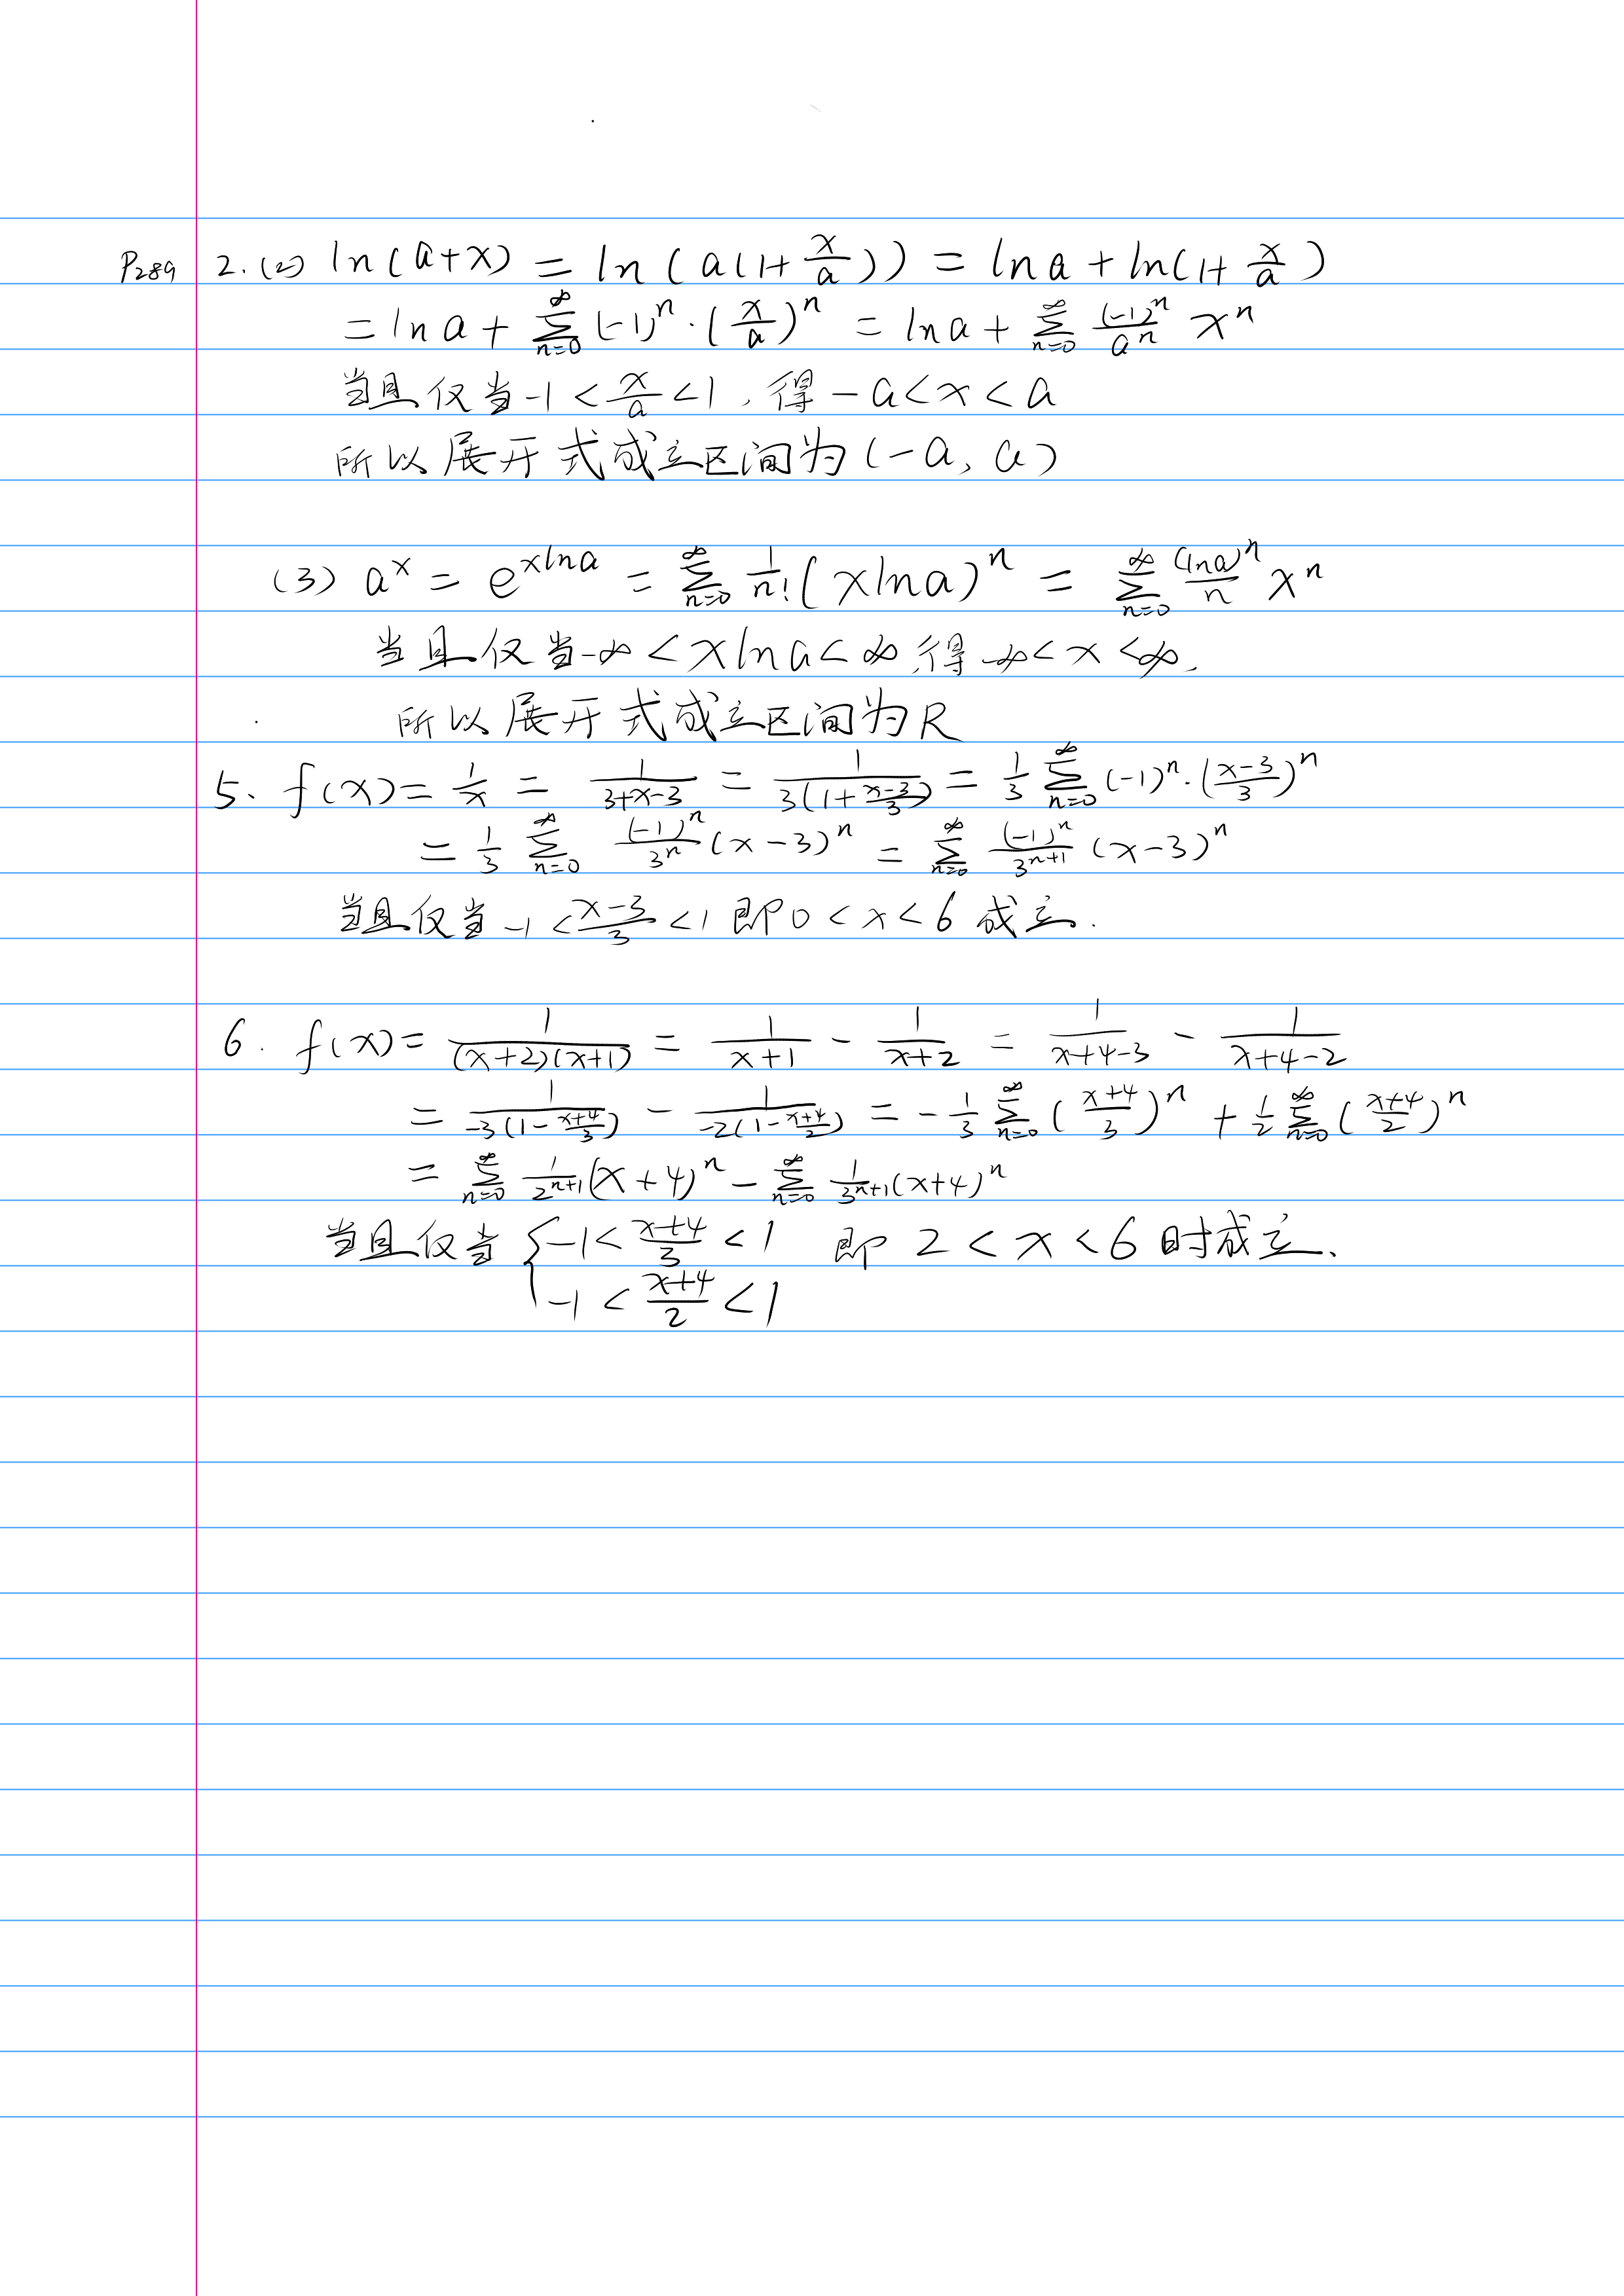 P289 2.(2) ln(a+x) = ln(a(1+x/a)) = ln a + ln(1+x/a)
= ln a + ∑_{n=0}^{∞} (-1)^n · (x/a)^n = ln a + ∑_{n=0}^{∞} (-1)^n/a^n x^n
当且仅当 -1 < x/a < 1, 得 -a < x < a
所以展开式成立区间为(-a, a)
(3) a^x = e^{xlna} = ∑_{n=0}^{∞} 1/n! (xlna)^n = ∑_{n=0}^{∞} (lna)^n/n x^n
当且仅当 -∞ < xlna < ∞, 得 -∞ < x < ∞,
所以展开式成立区间为R
5. f(x) = 1/x = 1/(3+x-3) = 1/(3(1+(x-3)/3)) = 1/3 ∑_{n=0}^{∞} (-1)^n · ((x-3)/3)^n
= 1/3 ∑_{n=0}^{∞} (-1)^n/3^n (x-3)^n = ∑_{n=0}^{∞} (-1)^n/3^{n+1} (x-3)^n
当且仅当 -1 < (x-3)/3 < 1 即 0 < x < 6 成立.
6. f(x) = 1/((x+2)(x+1)) = 1/(x+1) - 1/(x+2) = 1/(x+4-3) - 1/(x+4-2)
= 1/(-3(1-(x+4)/3)) - 1/(-2(1-(x+4)/2)) = -1/3 ∑_{n=0}^{∞} ((x+4)/3)^n + 1/2 ∑_{n=0}^{∞} ((x+4)/2)^n
= ∑_{n=0}^{∞} 1/2^{n+1} (x+4)^n - ∑_{n=0}^{∞} 1/3^{n+1} (x+4)^n
当且仅当 { -1 < (x+4)/3 < 1 即 2 < x < 6 时成立.
-1 < (x+4)/2 < 1